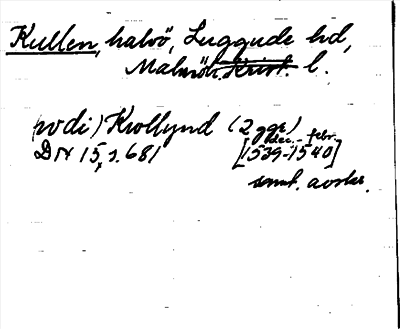 Kullen, halvö, Luggude hd,
Malmöh. Krist. l.
(wdi) Krollynd (2 ggr)
dec. - febr.
DN 15, s. 681 [1539-1540]
samt. avskr.